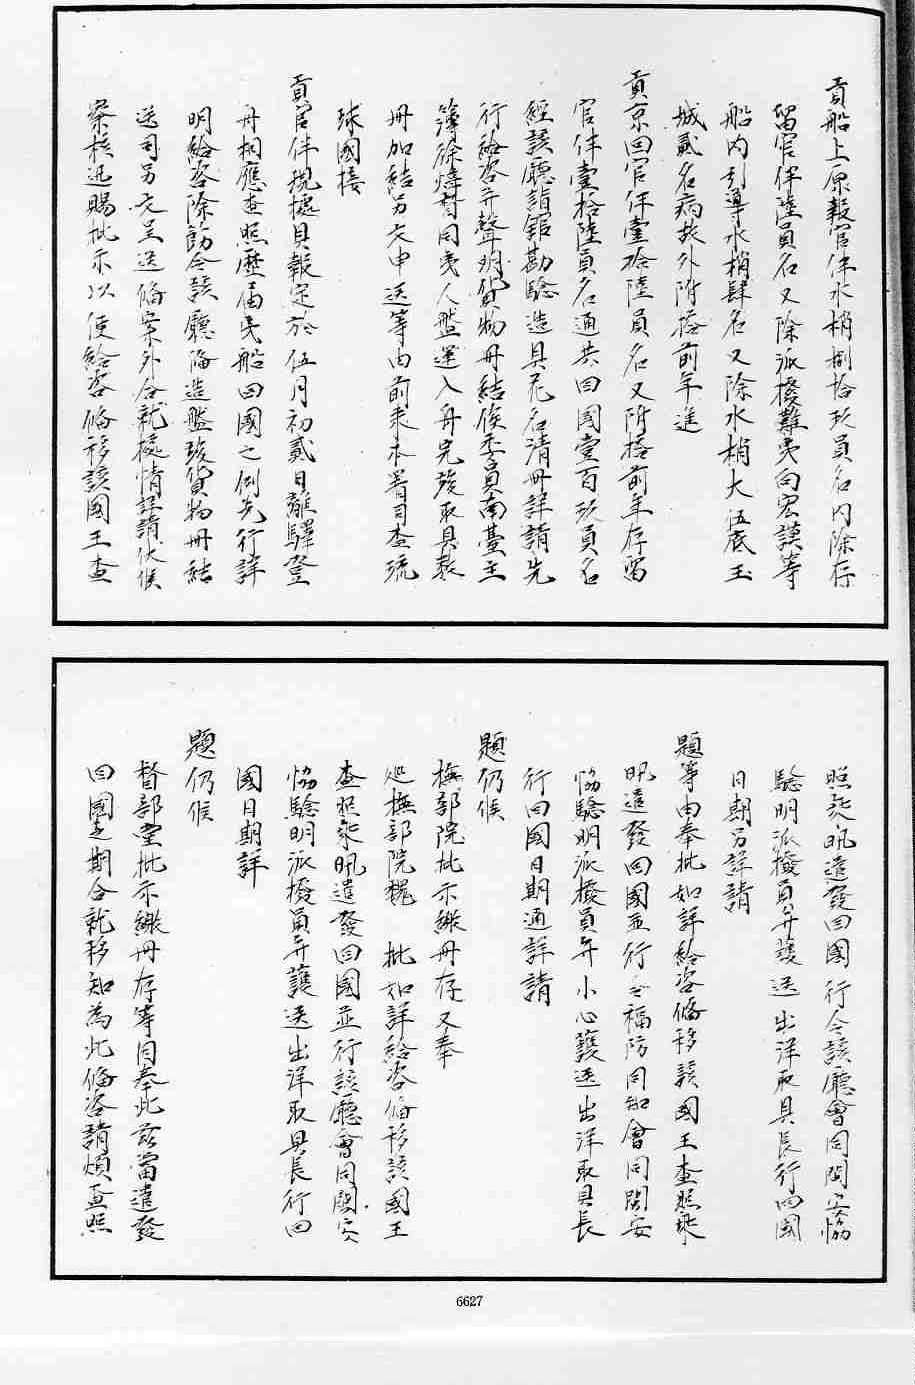 貢船上原報官伴水梢捌拾玖員名內除存
留官伴陸員名又除派撥難夷向宏謨等
船內引導水梢肆名又除水梢大伍底玉
城貳名病故外附搭前年進
貢京回官伴壹拾陸員名又附搭前年存留
官伴壹拾陸員名通共回國壹百玖員名
經該廳詣館勘驗造具花名清冊詳請先
行給咨并聲明貨物冊結俟委員南臺主
簿徐煒督同夷人盤運入舟完竣取具親
冊加結另文申送等由前來本署司查琉
球國接
貢官伴揽據具報定於伍月初貳日離驛登
舟相應查照歷屆夷船回國之例先行詳
明給咨除飭令該廳俻造盤竣貨物冊結
送司另文呈送俻案外合就據情詳請伏候
察核迅賜批示以便給咨俻移該國王查
照乘汛遣發回國行令該廳會同閩安協
驗明派撥員弁護送出洋取具長行回國
日期另詳請
題等由奉批如詳給咨俻移該國王查照乘
汛遣發回國並行令福防同知會同閩安
協驗明派撥員弁小心護送出洋取具長
行回國日期通詳請
題仍候
撫部院批示繳冊存又奉
巡撫部院魏 批如詳給咨俻移該國王
查照乘汛遣發回國並行該廳會同閩安
協驗明派撥員弁護送出洋取具長行回
國日期詳
題仍候
督部堂批示繳冊存等因奉此茲當遣發
回國之期合就移知為此俻咨請煩查照
6627